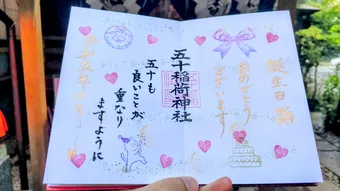 誕生日詣
おめでとう
ございます
五十稲荷神社
五十も
良いことが
重なり
ますように